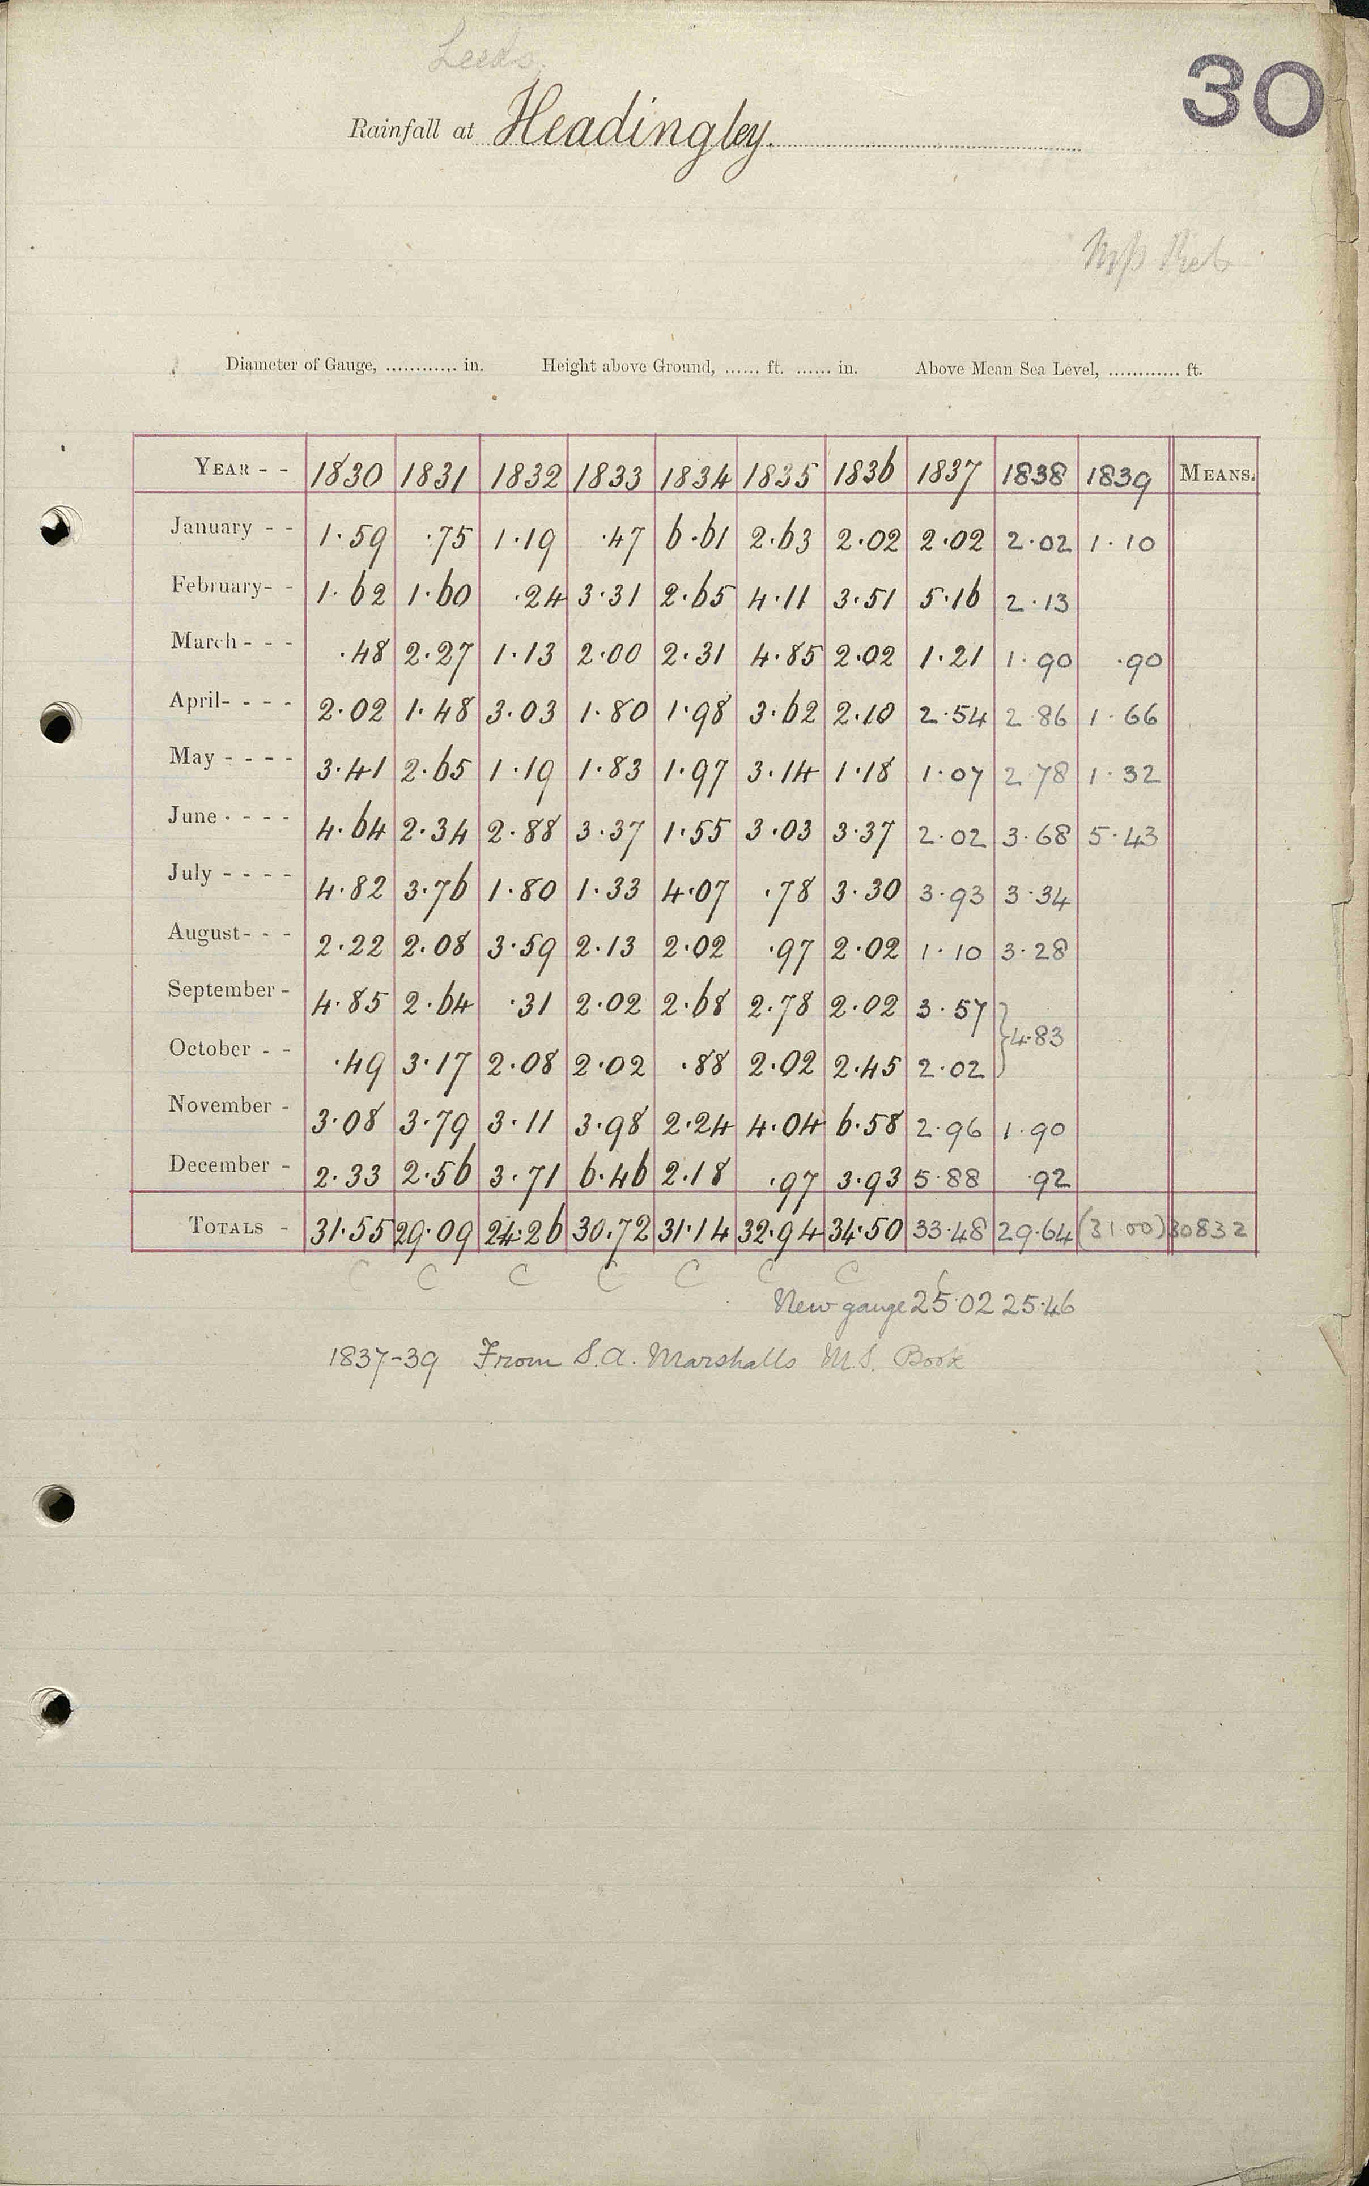 Leeds.
30
Rainfall at Headingley.
Diameter of Gauge, ............ in. Height above Ground, ...... ft. ...... in. Above Mean Sea Level, ............ ft.
YEAR - - 1830 1831 1832 1833 1834 1835 1836 1837 1838 1839 MEANS.
January - - 1·59 ·75 1·19 ·47 6·61 2·63 2·02 2·02 2·02 1·10
February- - 1·62 1·60 ·24 3·31 2·65 4·11 3·51 5·16 2·13
March - - - ·48 2·27 1·13 2·00 2·31 4·85 2·02 1·21 1·90 ·90
April- - - - 2·02 1·48 3·03 1·80 1·98 3·62 2·10 2·54 2·86 1·66
May - - - - 3·41 2·65 1·19 1·83 1·97 3·14 1·18 1·07 2·78 1·32
June - - - - 4·64 2·34 2·88 3·37 1·55 3·03 3·37 2·02 3·68 5·43
July - - - - 4·82 3·76 1·80 1·33 4·07 ·78 3·30 3·93 3·34
August- - - 2·22 2·08 3·59 2·13 2·02 ·97 2·02 1·10 3·28
September - 4·85 2·64 ·31 2·02 2·68 2·78 2·02 3·57 } 4·83
October - - ·49 3·17 2·08 2·02 ·88 2·02 2·45 2·02
November - 3·08 3·79 3·11 3·98 2·24 4·04 6·58 2·96 1·90
December - 2·33 2·56 3·71 6·46 2·18 ·97 3·93 5·88 ·92
TOTALS - 31·55 29·09 24·26 30·72 31·14 32·94 34·50 33·48 29·64 (31 00) 30832
C C C C C C C C
New gauge 25·02 25·46
1837-39 From S.A. Marshalls M.S. Book